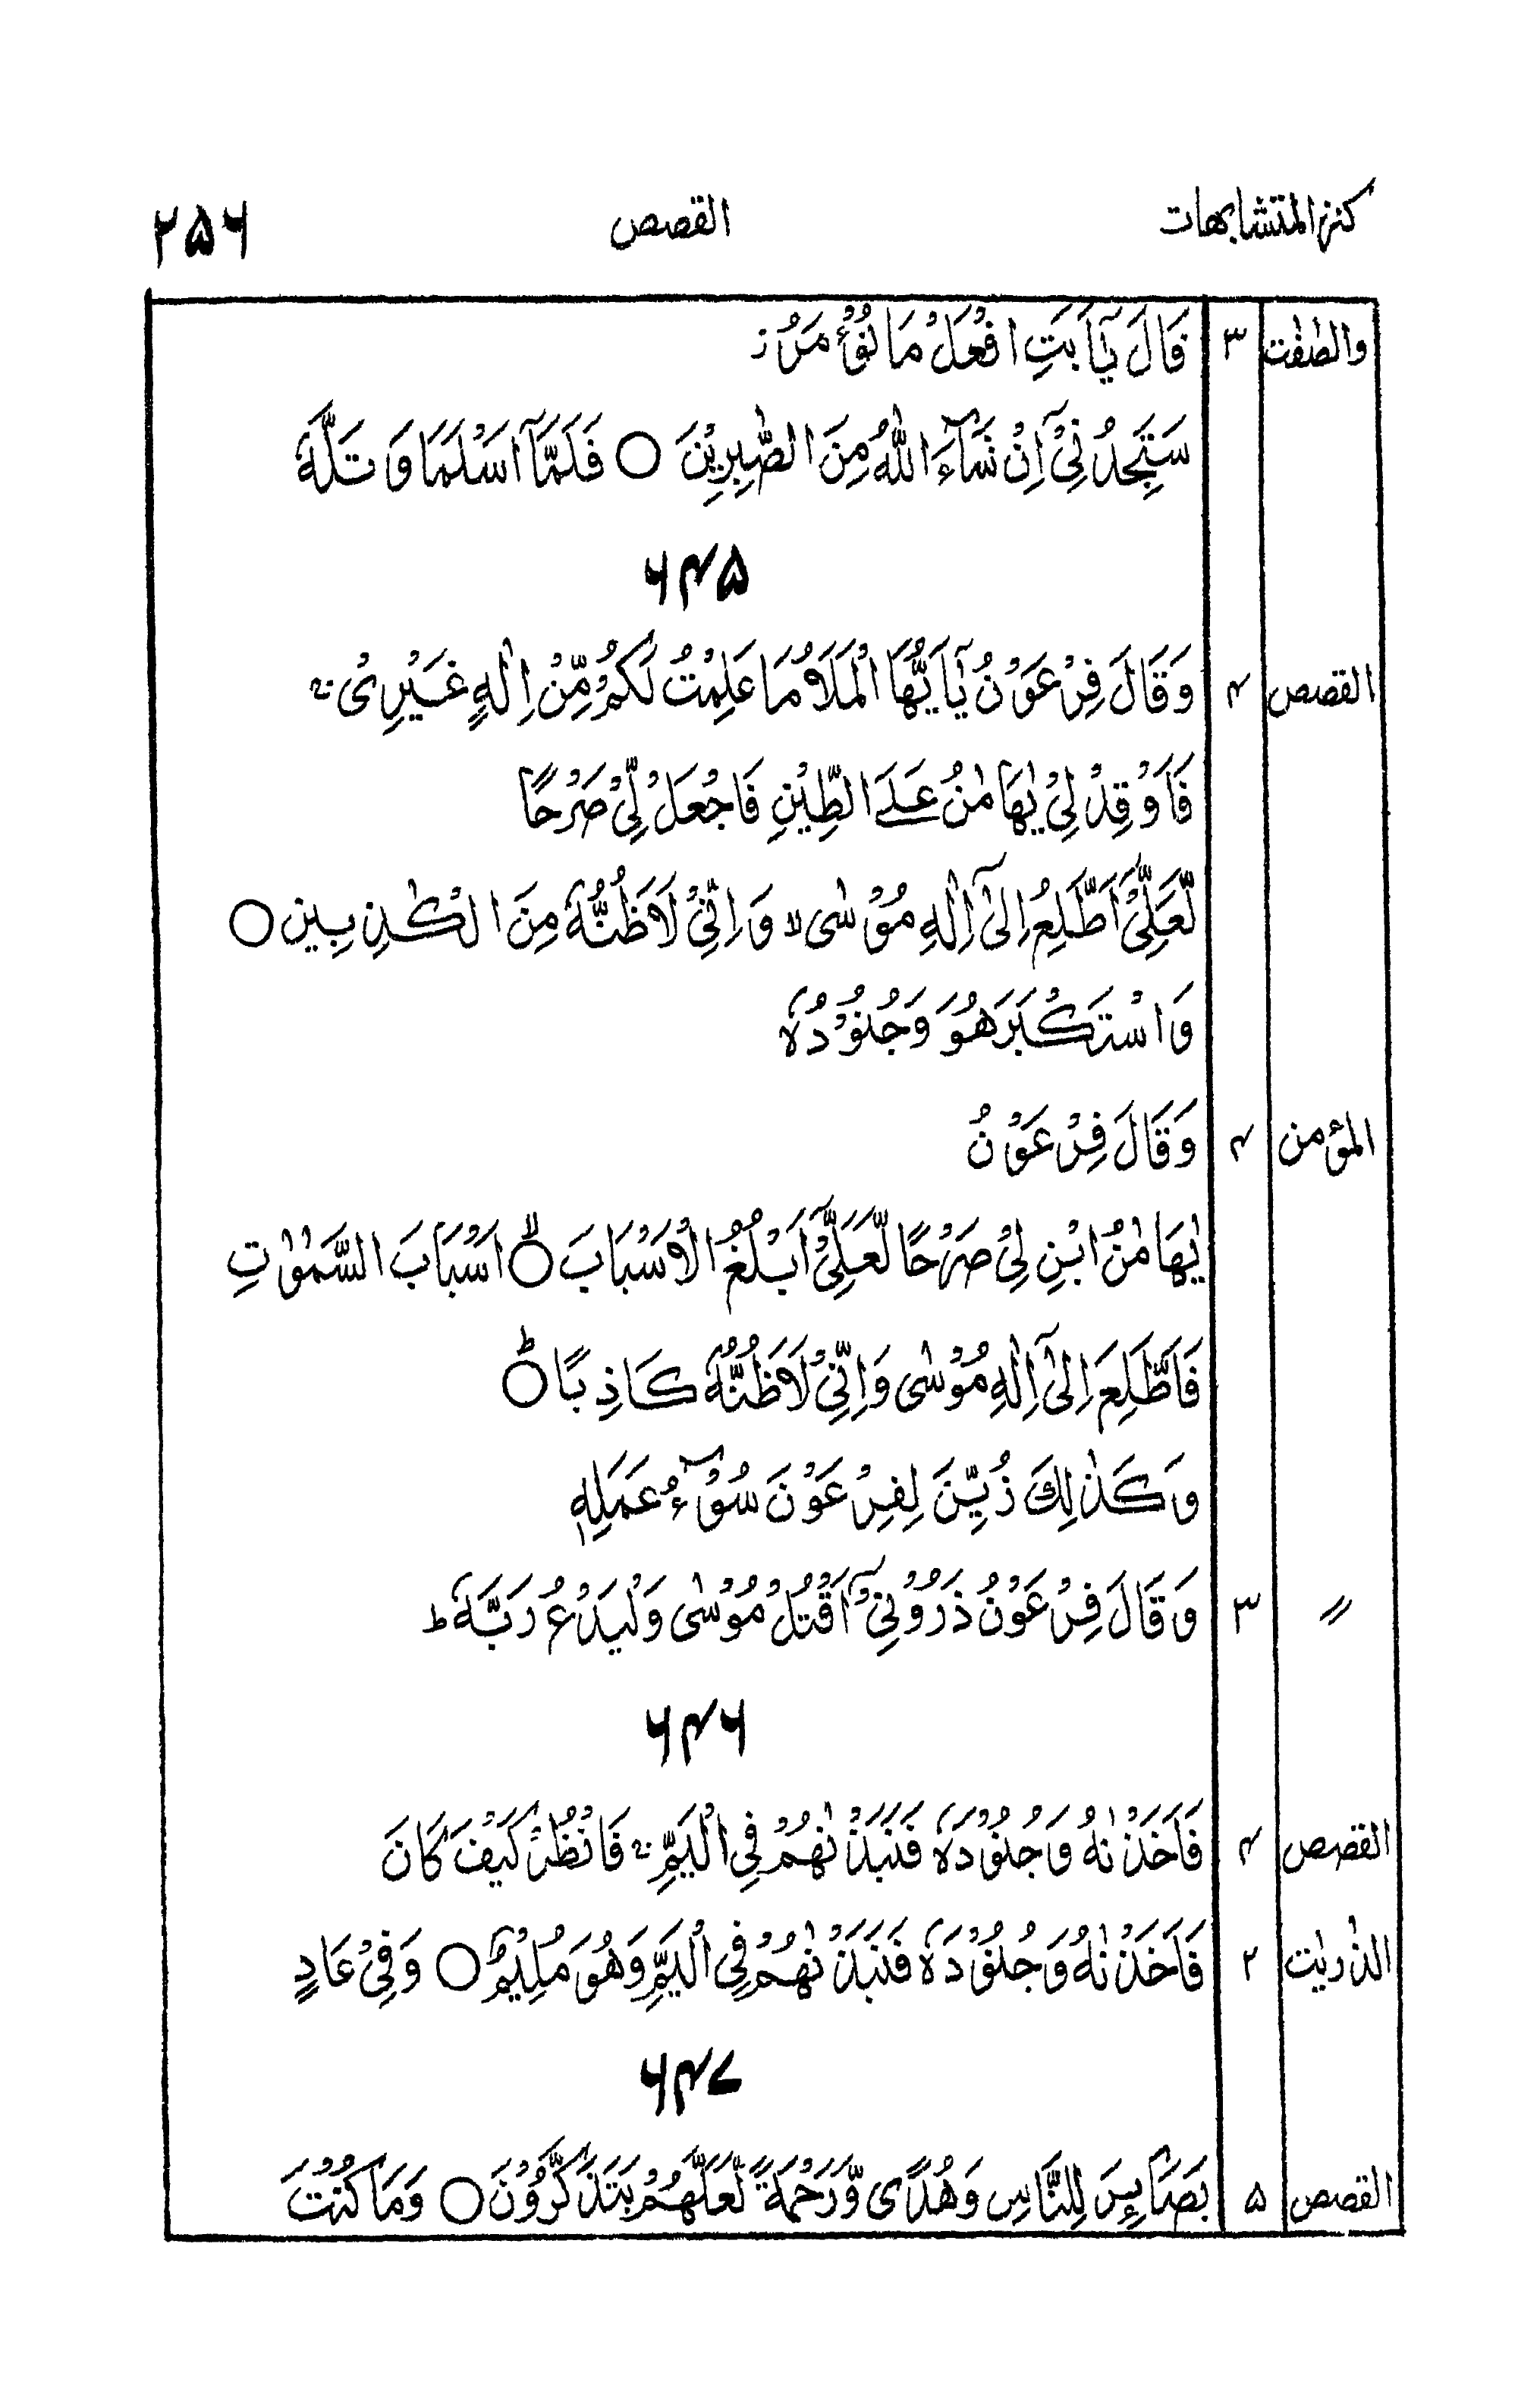 كنز المتشابهات القصص ۲۵۶
والصّٰفّٰت ۳ قَالَ يٰٓاَبَتِ افْعَلْ مَا تُؤْمَرُ ز
سَتَجِدُنِيْٓ اِنْ شَآءَ اللّٰهُ مِنَ الصّٰبِرِيْنَ ○ فَلَمَّآ اَسْلَمَا وَ تَلَّهٗ
۶۴۵
القصص ۴ وَ قَالَ فِرْعَوْنُ يٰٓاَيُّهَا الْمَلَاُ مَا عَلِمْتُ لَكُمْ مِّنْ اِلٰهٍ غَيْرِىْ ۚ
فَاَوْقِدْ لِيْ يٰهَامٰنُ عَلَى الطِّيْنِ فَاجْعَلْ لِّيْ صَرْحًا
لَّعَلِّيْٓ اَطَّلِعُ اِلٰٓى اِلٰهِ مُوْسٰى ۙ وَ اِنِّيْ لَاَظُنُّهٗ مِنَ الْكٰذِبِين ○
وَ اسْتَكْبَرَ هُوَ وَ جُنُوْدُهٗ
المؤمن ۴ وَ قَالَ فِرْعَوْنُ
يٰهَامٰنُ ابْنِ لِيْ صَرْحًا لَّعَلِّيْٓ اَبْلُغُ الْاَسْبَابَ ○ۙ اَسْبَابَ السَّمٰوٰتِ
فَاَطَّلِعَ اِلٰٓى اِلٰهِ مُوْسٰى وَ اِنِّيْ لَاَظُنُّهٗ كَاذِبًا ○ؕ
وَ كَذٰلِكَ زُيِّنَ لِفِرْعَوْنَ سُوْٓءُ عَمَلِهٖ
〃 ۳ وَ قَالَ فِرْعَوْنُ ذَرُوْنِيْٓ اَقْتُلْ مُوْسٰى وَلْيَدْعُ رَبَّهٗ ؕ
۶۴۶
القصص ۴ فَاَخَذْنٰهُ وَ جُنُوْدَهٗ فَنَبَذْنٰهُمْ فِي الْيَمِّ ۚ فَانْظُرْ كَيْفَ كَانَ
الذريٰت ۲ فَاَخَذْنٰهُ وَ جُنُوْدَهٗ فَنَبَذْنٰهُمْ فِي الْيَمِّ وَهُوَ مُلِيْمٌ ○ وَ فِيْ عَادٍ
۶۴۷
القصص ۵ بَصَآئِرَ لِلنَّاسِ وَهُدًى وَّرَحْمَةً لَّعَلَّهُمْ يَتَذَكَّرُوْنَ ○ وَمَا كُنْتَ